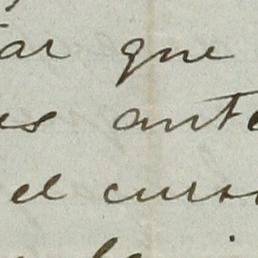 ar que
es ante
el curso